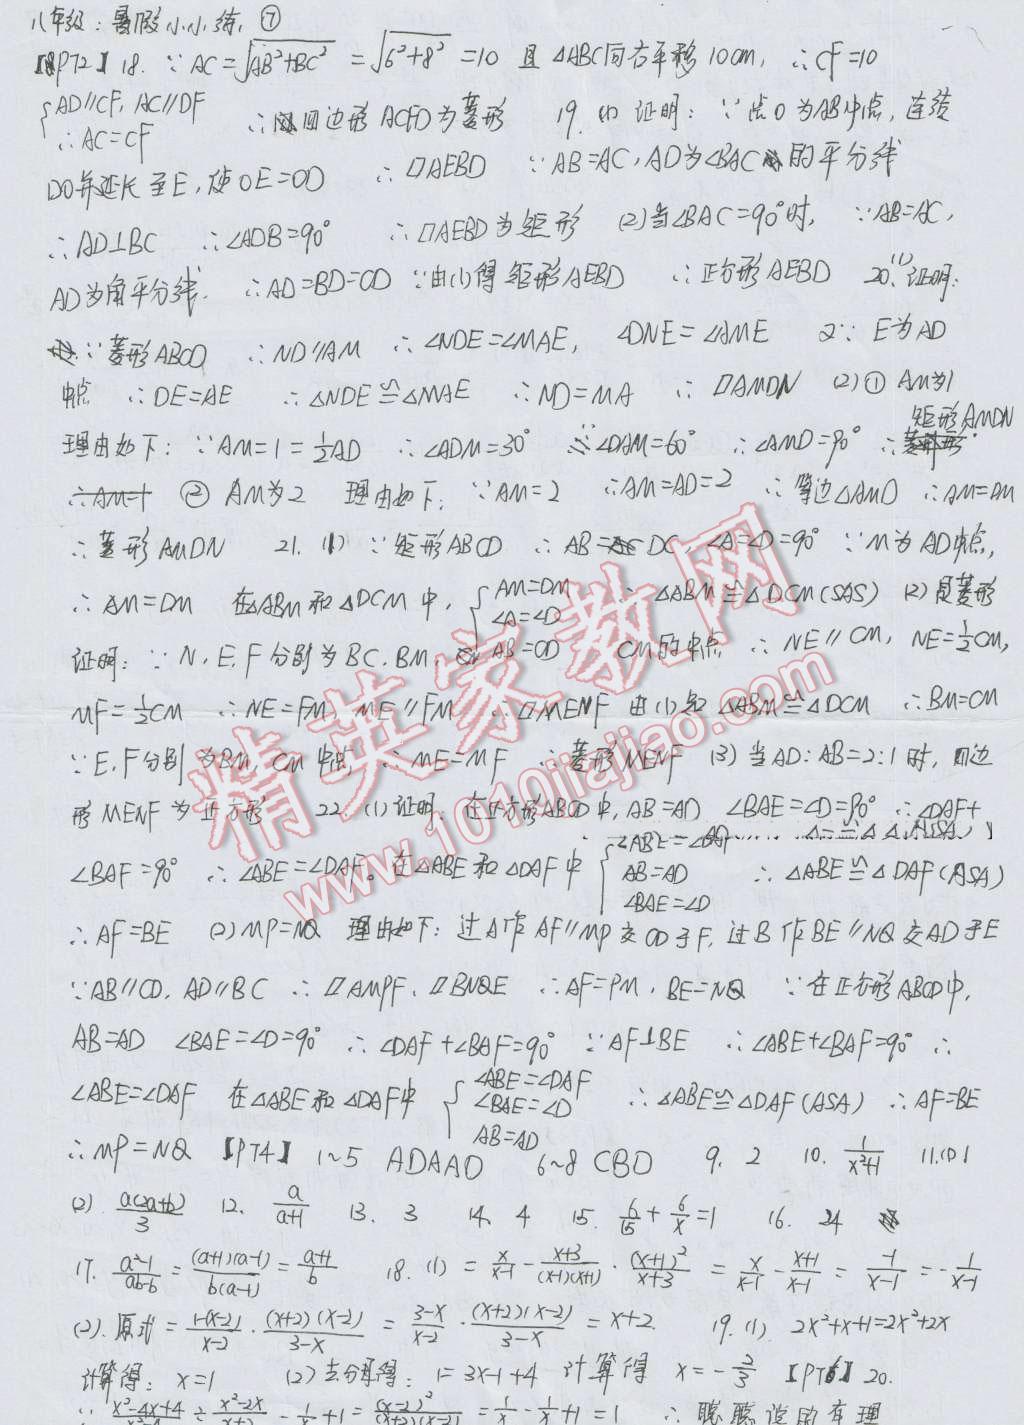 八年级:暑假小小练.⑦
【P72】18. ∵ AC=√(AB²+BC²) =√(6²+8²) =10 且 △ABC向右平移10cm, ∴CF=10
{AD∥CF, AC∥DF ∴四边形ACFD为菱形 19. (1) 证明: ∵点O为AB中点, 连接
∴AC=CF
DO并延长至E, 使OE=OD ∴▱AEBD ∵AB=AC, AD为∠BAC的平分线
∴AD⊥BC ∴∠ADB=90° ∴▱AEBD为矩形 (2)当∠BAC=90°时, ∵AB=AC,
AD为角平分线. ∴AD=BD=CD ∵由(1)得矩形AEBD ∴正方形AEBD 20.(1)证明:
∵菱形ABCD ∴ND∥AM ∴∠NDE=∠MAE, ∠DNE=∠AME 又∵E为AD
中点 ∴DE=AE ∴△NDE≌△MAE ∴ND=MA ∴▱AMDN (2)① AM为1
理由如下: ∵AM=1=½AD ∴∠ADM=30° ∵∠DAM=60° ∴∠AMD=90° ∴矩形AMDN
② AM为2 理由如下: ∵AM=2 ∴AM=AD=2 ∴等边△AMD ∴AM=DM
∴菱形AMDN 21. (1) ∵矩形ABCD ∴AB=DC ∠A=∠D=90° ∵M为AD中点,
∴AM=DM 在△ABM和△DCM中, {AM=DM ∠A=∠D AB=CD ∴△ABM≌△DCM(SAS) (2)是菱形
证明: ∵N、E、F分别为BC、BM、CM的中点 ∴NE∥CM, NE=½CM,
MF=½CM ∴NE=FM, NE∥FM ∴▱MENF 由(1)知△ABM≌△DCM ∴BM=CM
∵E、F分别为BM、CM中点 ∴ME=MF ∴菱形MENF (3)当AD:AB=2:1时, 四边
形MENF为正方形 22. (1)证明: 在正方形ABCD中, AB=AD ∠BAE=∠D=90° ∴∠DAF+
∠BAF=90° ∴∠ABE=∠DAF。在△ABE和△DAF中 {∠ABE=∠DAF AB=AD ∠BAE=∠D ∴△ABE≌△DAF(ASA)
∴AF=BE (2)MP=NQ 理由如下: 过A作AF∥MP交CD于F, 过B作BE∥NQ交AD于E
∵AB∥CD, AD∥BC ∴▱AMPF, ▱BNQE ∴AF=PM, BE=NQ ∵在正方形ABCD中,
AB=AD ∠BAE=∠D=90° ∴∠DAF+∠BAF=90° ∵AF⊥BE ∴∠ABE+∠BAF=90° ∴
∠ABE=∠DAF 在△ABE和△DAF中 {∠ABE=∠DAF ∠BAE=∠D AB=AD ∴△ABE≌△DAF(ASA) ∴AF=BE
∴MP=NQ 【P74】1~5 ADAAD 6~8 CBD 9. 2 10. 1/(x²+1) 11.(1) 1
(2) a(2a+b)/3 12. a/(a+1) 13. 3 14. 4 15. 6/15+6/x=1 16. 24
17. (a²-1)/(ab-b)=(a+1)(a-1)/b(a-1)=(a+1)/b 18. (1) =x/(x-1)-(x+3)/(x-1)(x+1)·(x+1)²/(x+3) =x/(x-1)-(x+1)/(x-1)=-1/(x-1)=-1/(x-1)
(2). 原式=(1-(x-2))/(x-2)·(x+2)(x-2)/(3-x) =(3-x)/(x-2)·(x+2)(x-2)/(3-x) =x+2. 19.(1). 2x²+x+1=2x²+2x
计算得: x=1 (2)去分母得: 1=3x-1+4 计算得 x=-2/3 【P76】20.
∵ (x²-4x+4)/(x²-4)÷(x²-2x)/(x+2)-1/x+1=(x-2)²/(x+2)(x-2) =1/x-1/x+1=1 ∴聪聪说的有理
精英家教网
www.1010jiajiao.com